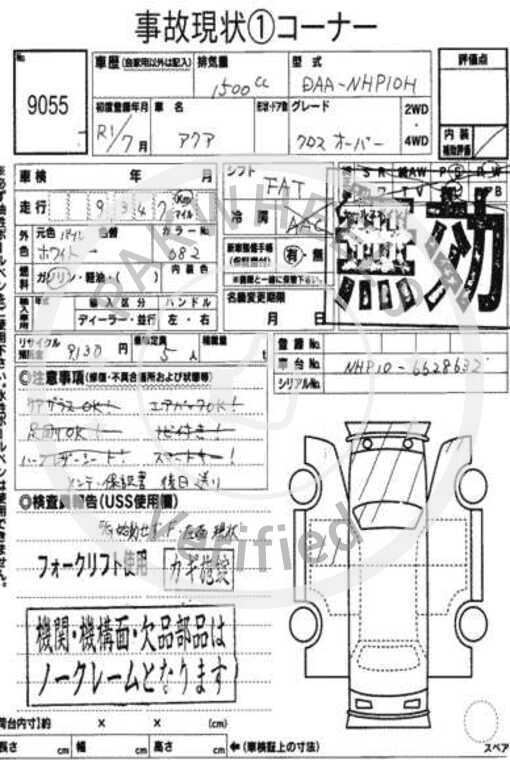 事故現状①コーナー
No.
9055
車歴(自家用以外は記入)
排気量
1500cc
型式
DAA-NHP10H
評価点
初度登録年月
R1/7月
車名
アクア
形状・ドア数
グレード
クロスオーバー
2WD
・
4WD
内装
補助評価
車検 年 月
シフト
FAT
走行
19347
Km
マイル
冷房
AAC
外色
元色
ホワイトパール
色替
カラーNo.
682
新車整備手帳
(保証書付)
有・無
燃料
ガソリン・軽油・( )
内装色
無効
名義変更期限
月 日
輸入車用
年式
輸入区分
ディーラー・並行
ハンドル
左・右
リサイクル
預託金
9130円
乗車定員
5人
積載量
t
登録No.
車台No.
NHP10-6628632
シリアルNo.
◎注意事項(修復・不具合箇所および状態等)
エアバックOK!
ナビ付き!
スマートキー!
メンテ・保証書 後日送り
◎検査員報告(USS使用欄)
現状
フォークリフト使用
カギ施錠
機関・機構面・欠品部品は
ノークレームとなります
荷台内寸)約 × × (cm)
長さ cm
幅 cm
高さ cm
←(車検証上の寸法)
スペア
PAKWHEELS
Verified